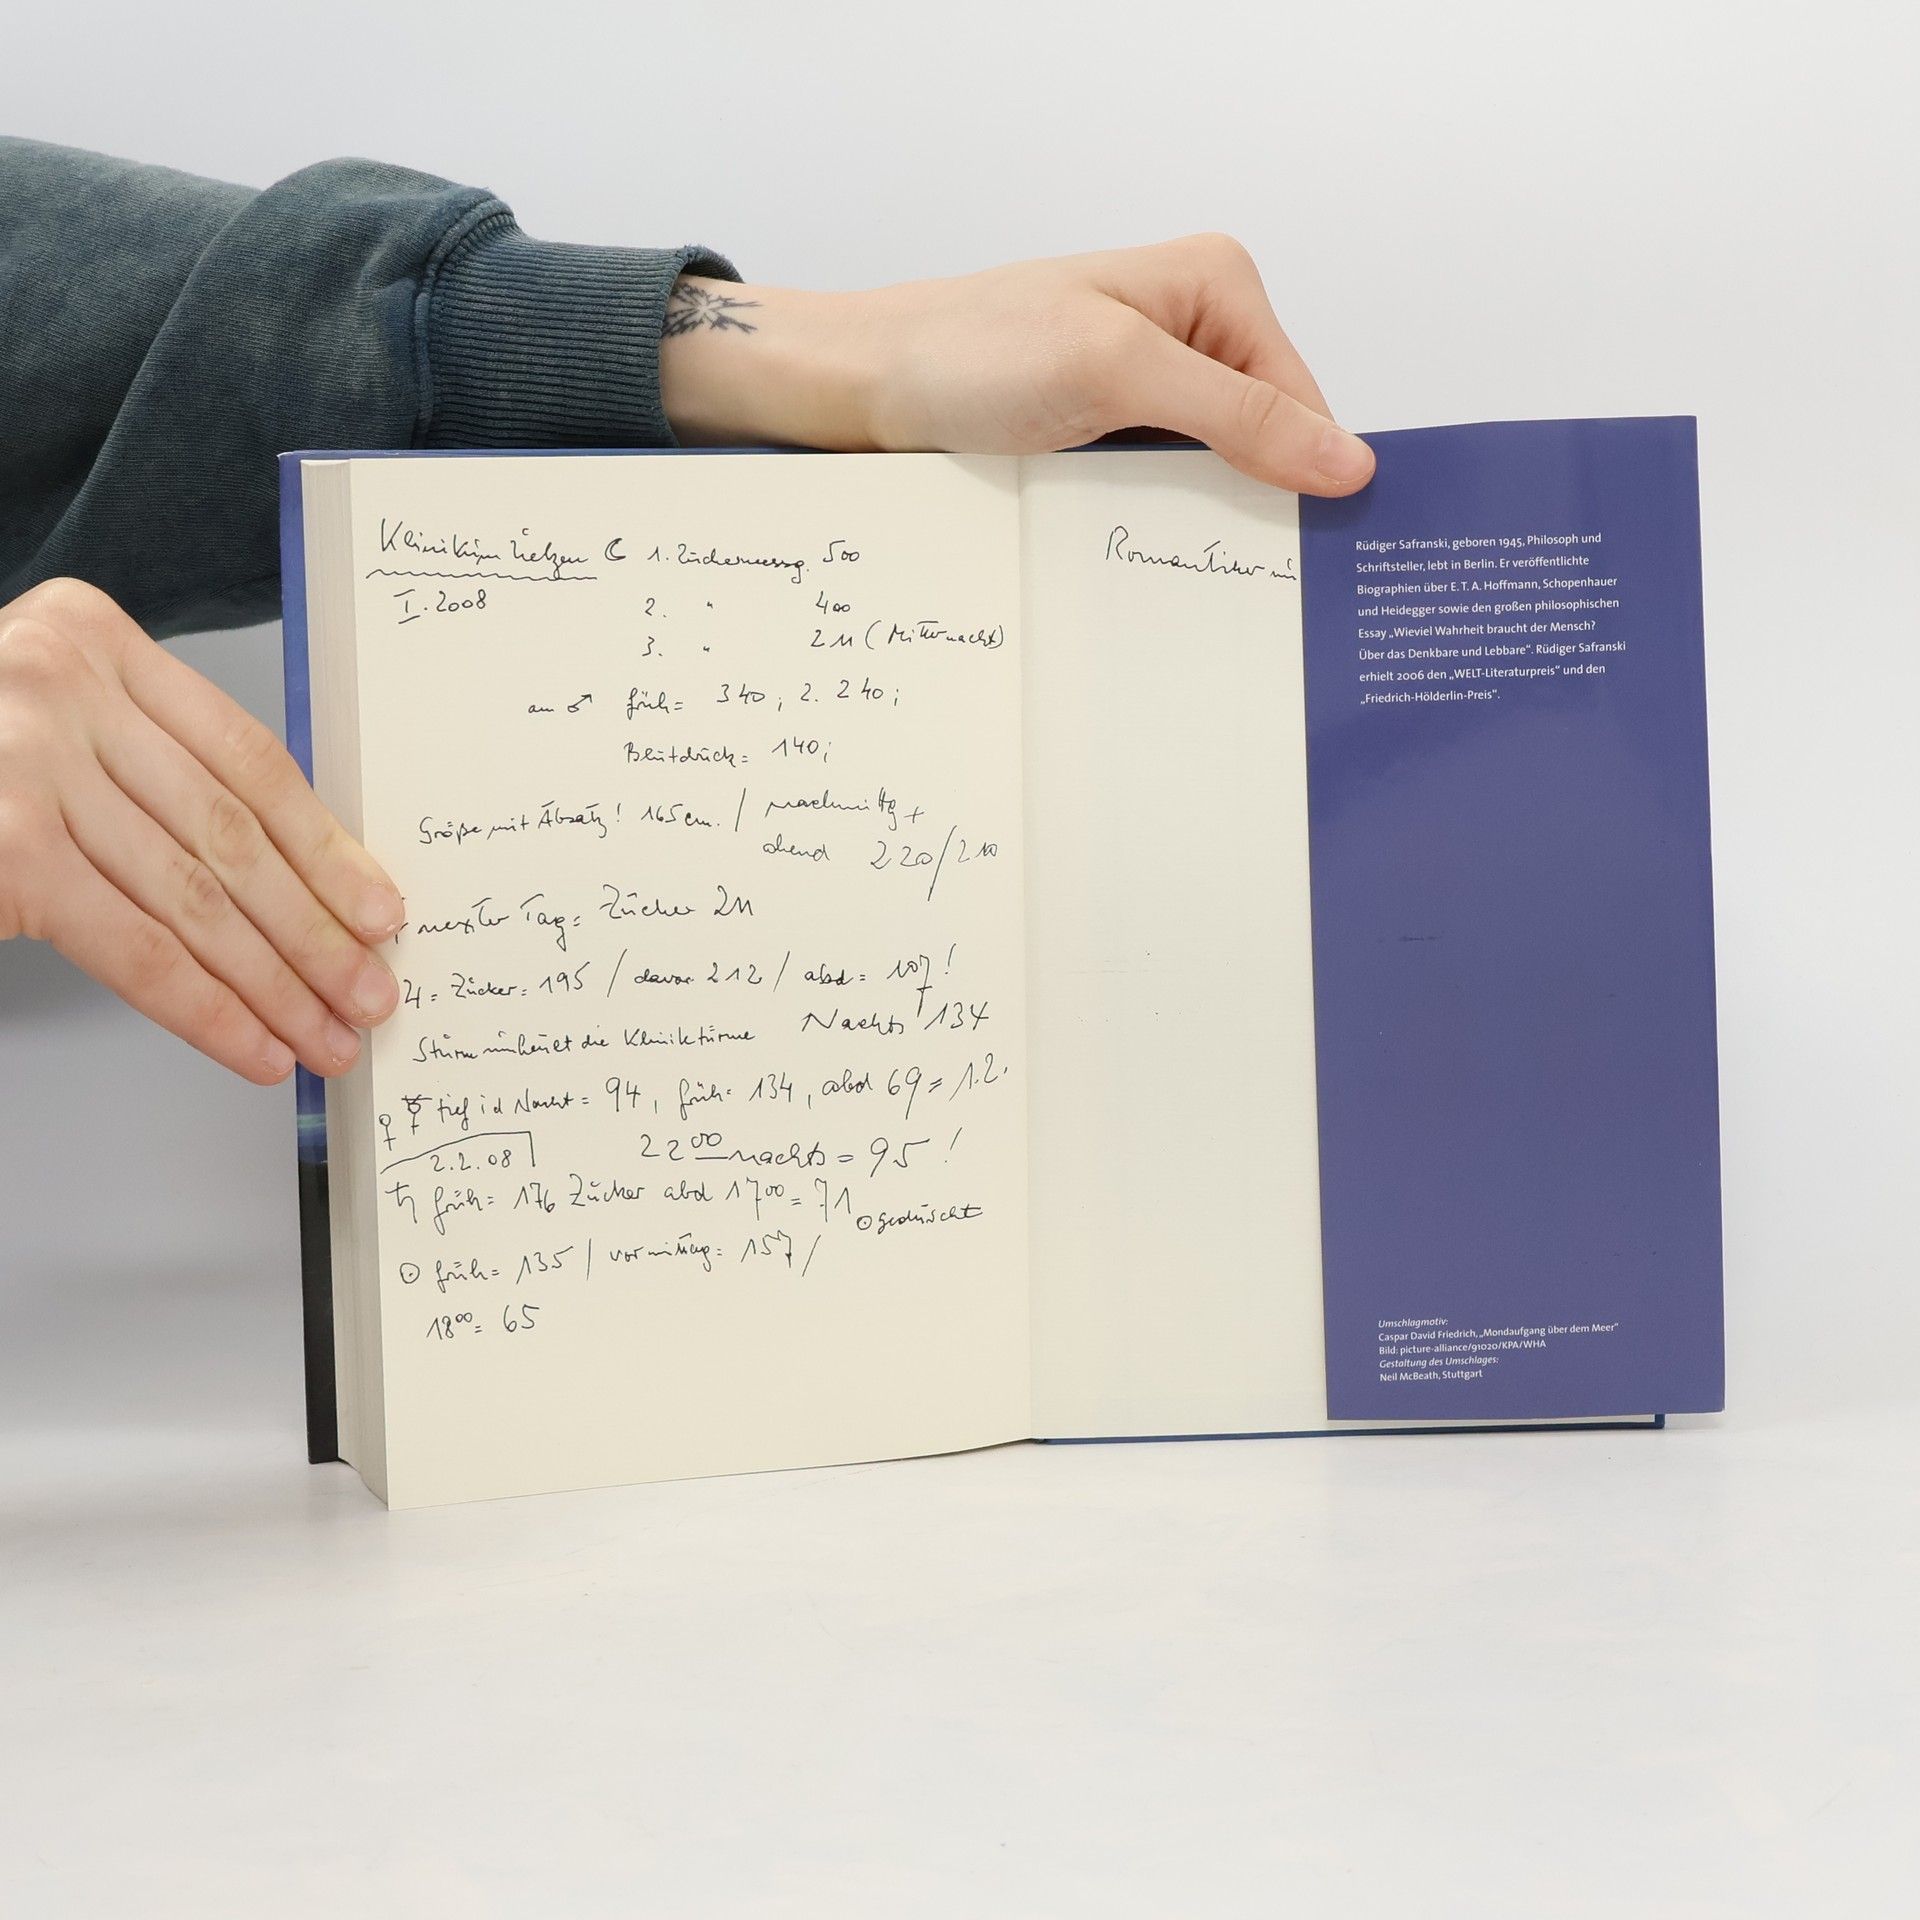 Klinikum Uelzen ☾ 1. Zuckermessg. 500
I. 2008 2. " 400
3. " 211 (Mitternacht)
am ♂ früh = 340 ; 2. 240 ;
Blutdruck = 140 ;
Größe mit Absatz! 165 cm. / nachmittg +
abend 220/210
nexter Tag = Zucker 211
♃ = Zucker = 195 / davor 212 / abd = 107!
Sturm umheult die Kliniktürme Nachts 134
♀ ☿ tief i d Nacht = 94, früh = 134, abd 69 = 1.2.
2.2.08 22⁰⁰ nachts = 95!
♄ früh = 176 Zucker abd 17⁰⁰ = 71
⊙ geduscht
⊙ früh = 135 / vormittag = 157 /
18⁰⁰ = 65
Romantiker
Rüdiger Safranski, geboren 1945, Philosoph und
Schriftsteller, lebt in Berlin. Er veröffentlichte
Biographien über E. T. A. Hoffmann, Schopenhauer
und Heidegger sowie den großen philosophischen
Essay „Wieviel Wahrheit braucht der Mensch?
Über das Denkbare und Lebbare“. Rüdiger Safranski
erhielt 2006 den „WELT-Literaturpreis“ und den
„Friedrich-Hölderlin-Preis“.
Umschlagmotiv:
Caspar David Friedrich, „Mondaufgang über dem Meer“
Bild: picture-alliance/91020/KPA/WHA
Gestaltung des Umschlages:
Neil McBeath, Stuttgart